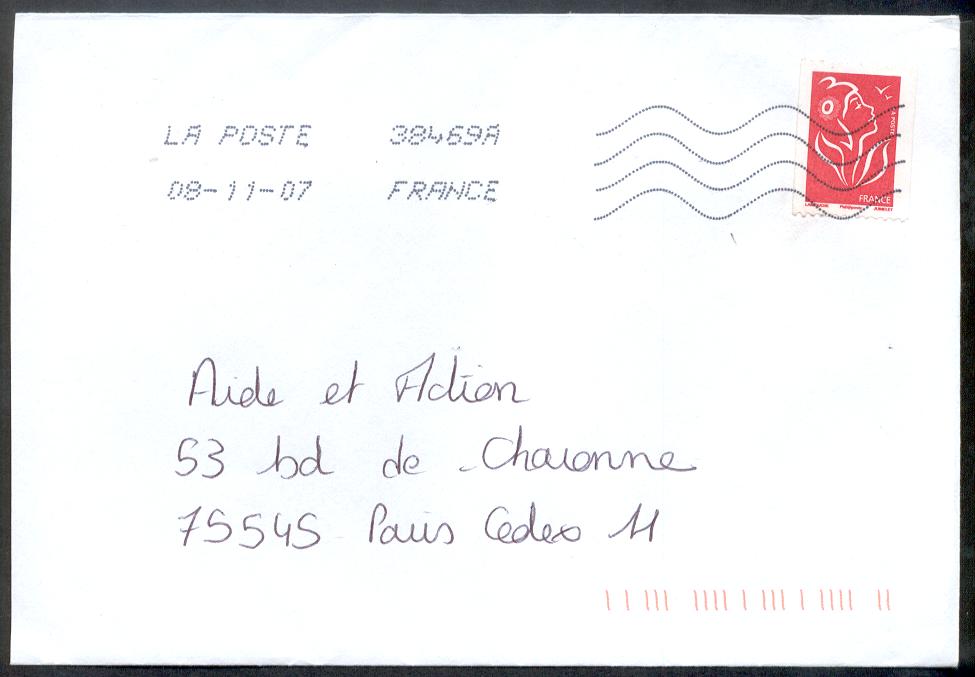 LA POSTE 38469A
08-11-07 FRANCE
LA POSTE
FRANCE
LAMOUCHE Phil@poste JUMELET
Aide et Action
53 bd de Charonne
75545 Paris Cedex 11